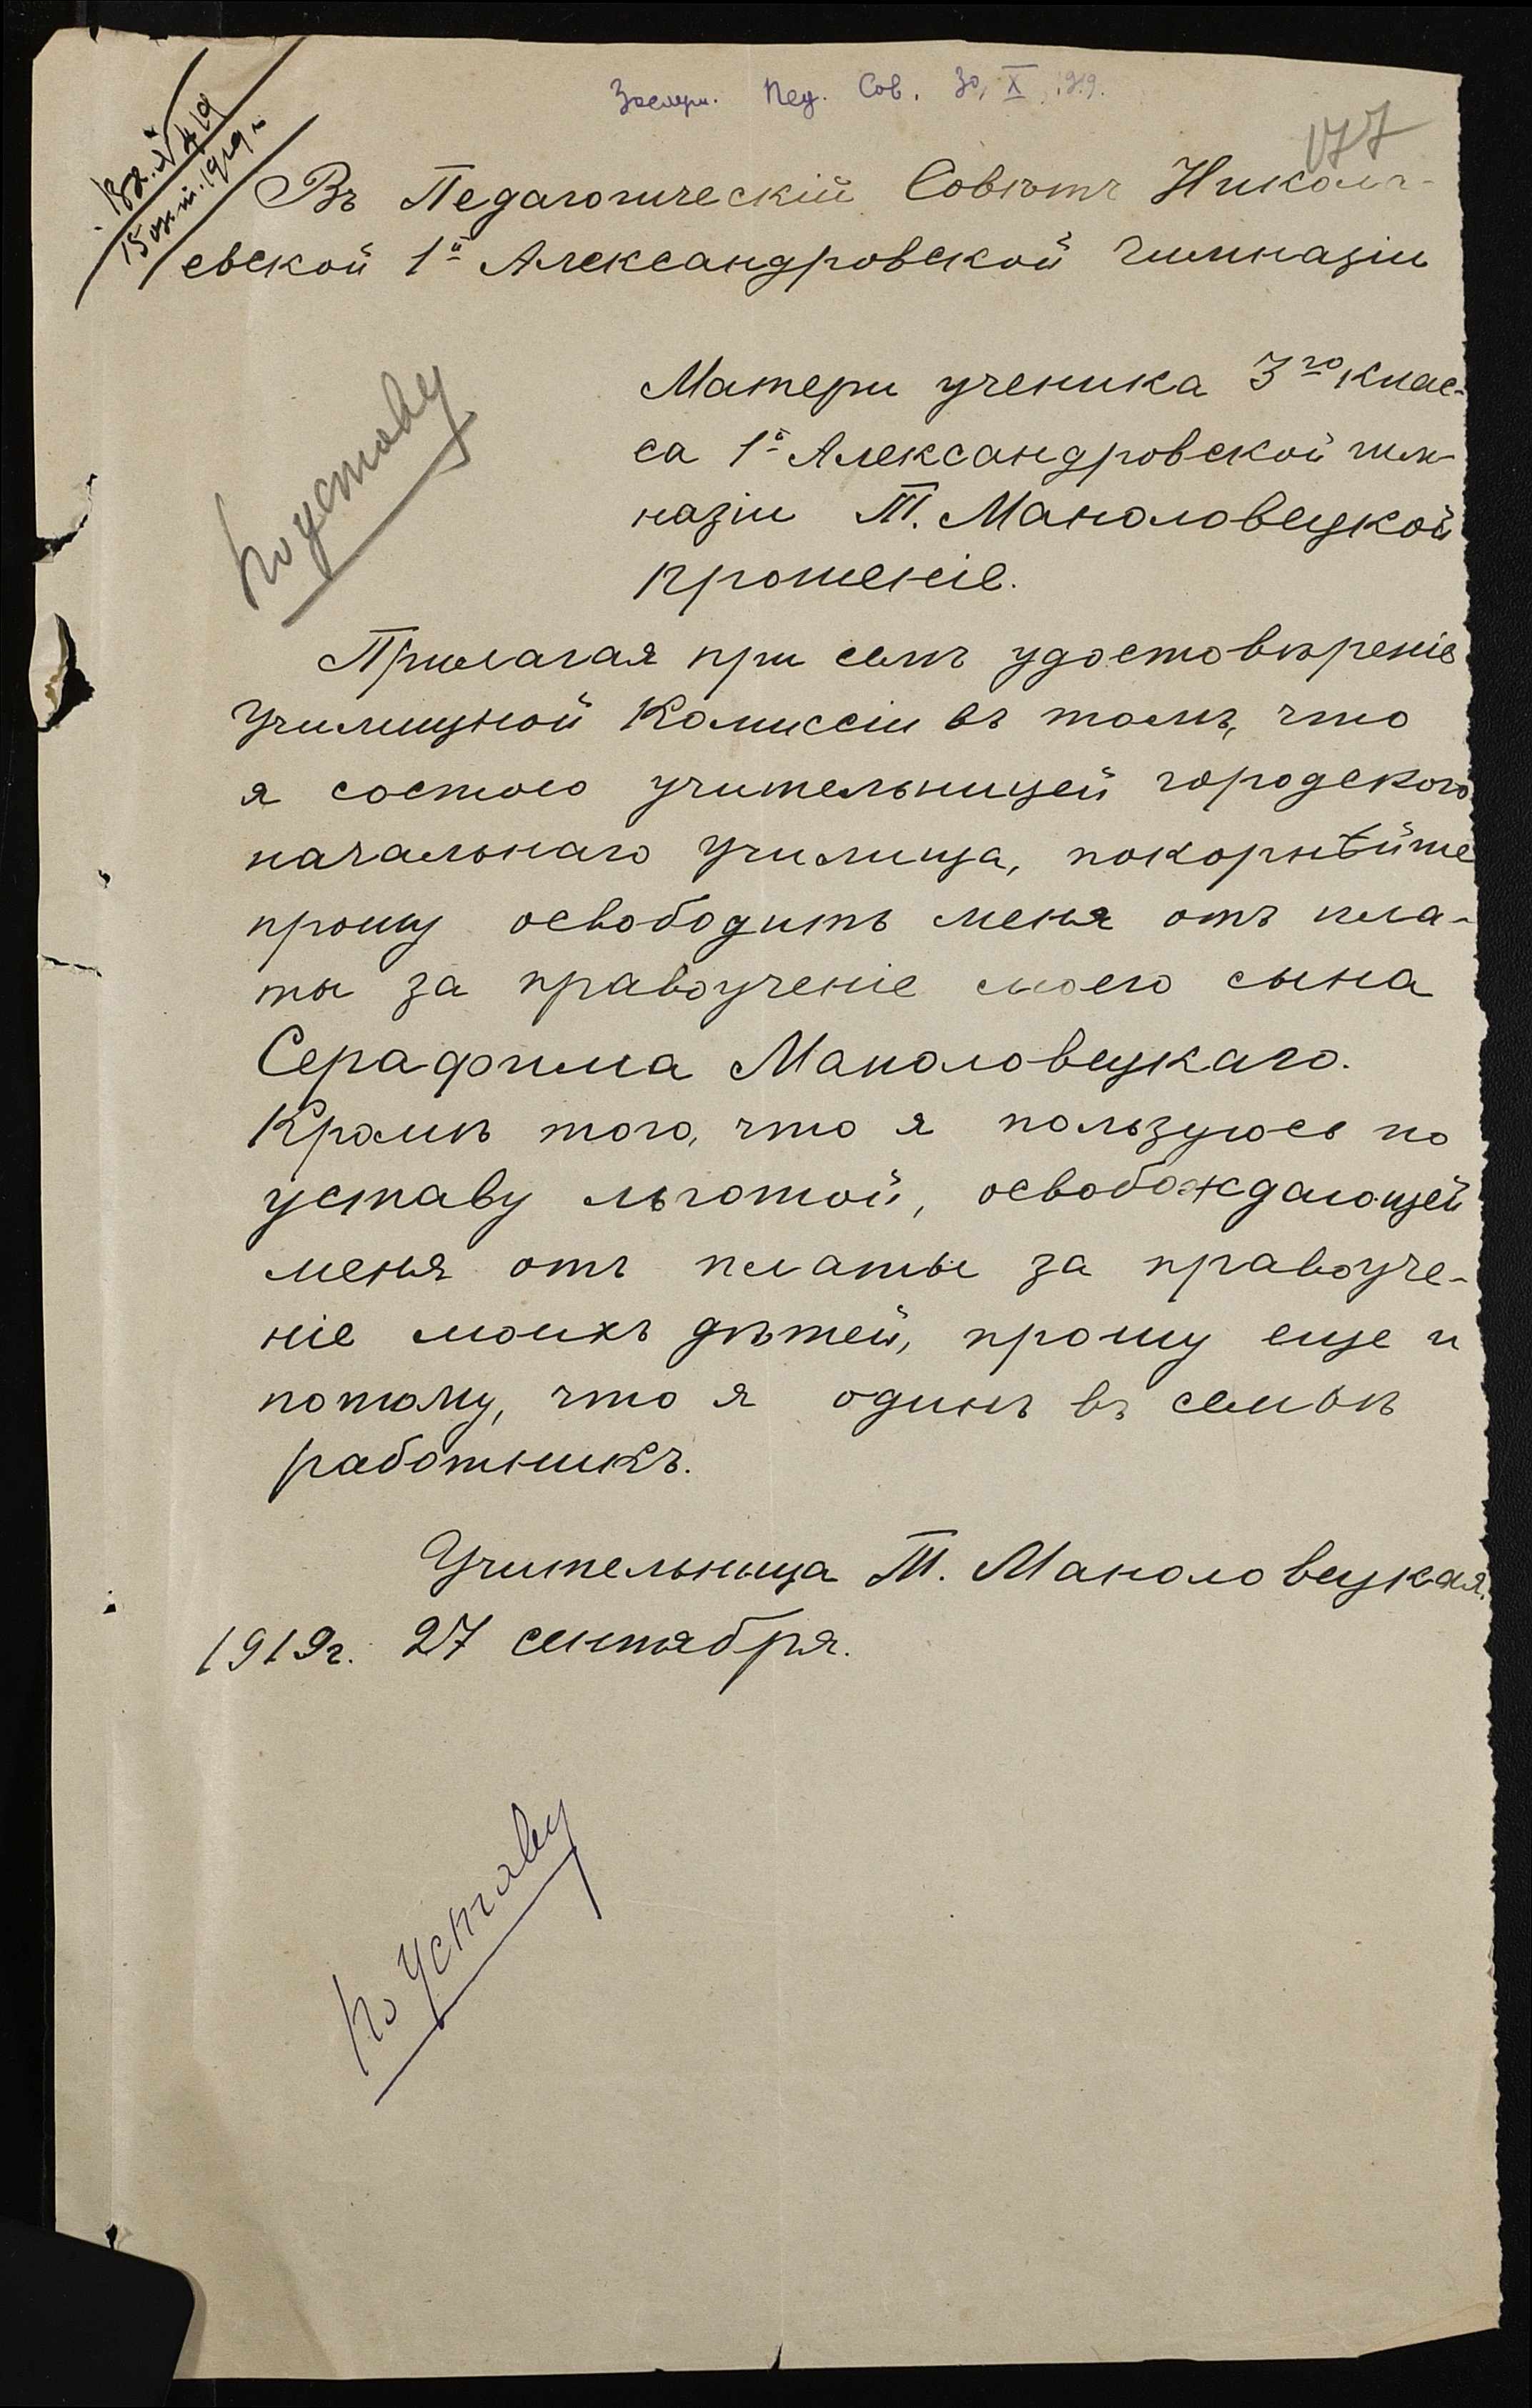 Заслуш. Пед. Сов. 30, X 1919.
177
Вх. № 419
15 окт. 1919 г.
Въ Педагогическій Совѣтъ Никола-
евской 1й Александровской гимназіи
По уставу
Матери ученика 3го клас-
са 1й Александровской гим-
назіи Т. Манголовецкой
прошеніе.
Прилагая при семъ удостовѣреніе
Училищной Комиссіи въ томъ, что
я состою учительницей городского
начальнаго училища, покорнѣйше
прошу освободить меня отъ пла-
ты за правоученіе моего сына
Серафима Маноловецкаго.
Кромѣ того, что я пользуюсь по
уставу льготой, освобождающей
меня отъ платы за правоуче-
ніе моихъ дѣтей, прошу еще и
потому, что я одинъ въ семьѣ
работникъ.
Учительница Т. Маноловецкая.
1919г. 27 сентября.
По уставу